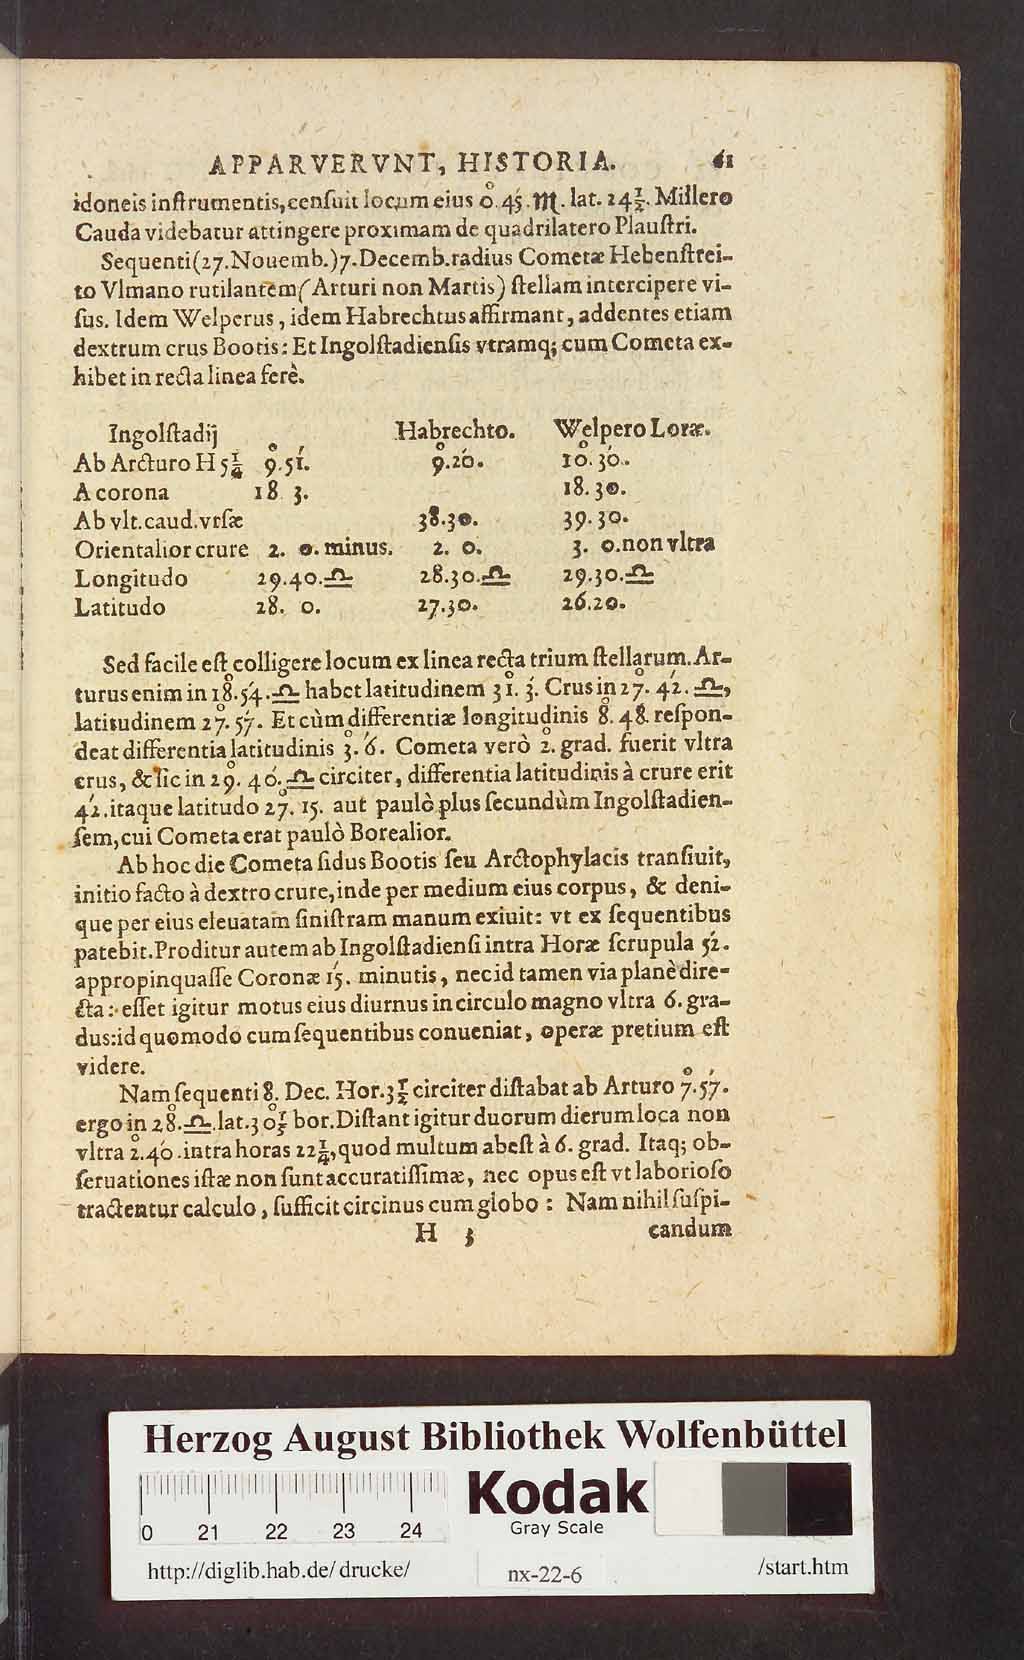 APPARVERVNT, HISTORIA. 61
idoneis inſtrumentis, cenſuit locum eius 0°. 45′. ♏. lat. 24½. Millero
Cauda videbatur attingere proximam de quadrilatero Plauſtri.
Sequenti (27. Nouemb.) 7. Decemb. radius Cometæ Hebenſtrei-
to Vlmano rutilantem (Arturi non Martis) ſtellam intercipere vi-
ſus. Idem Welperus, idem Habrechtus affirmant, addentes etiam
dextrum crus Bootis: Et Ingolſtadienſis vtramq; cum Cometa ex-
hibet in recta linea ferè.
Ingolſtadij Habrechto. Welpero Loræ.
Ab Arcturo H 5¼ 9°. 51′. 9°. 20′. 10°. 30′.
A corona 18. 3. 18. 30.
Ab vlt. caud. vrſæ 38. 30. 39. 30.
Orientalior crure 2. 0. minus. 2. 0. 3. 0. non vltra
Longitudo 29. 40. ♎ 28. 30. ♎ 29. 30. ♎
Latitudo 28. 0. 27. 30. 26. 20.
Sed facile eſt colligere locum ex linea recta trium ſtellarum. Ar-
turus enim in 18°. 54′. ♎ habet latitudinem 31°. 3′. Crus in 27°. 42′. ♎,
latitudinem 27°. 57′. Et cùm differentiæ longitudinis 8°. 48. reſpon-
deat differentia latitudinis 3°. 6′. Cometa verò 2°. grad. fuerit vltra
crus, & ſic in 29°. 40′. ♎ circiter, differentia latitudinis à crure erit
42′. itaque latitudo 27°. 15. aut paulò plus ſecundùm Ingolſtadien-
ſem, cui Cometa erat paulò Borealior.
Ab hoc die Cometa ſidus Bootis ſeu Arctophylacis tranſiuit,
initio facto à dextro crure, inde per medium eius corpus, & deni-
que per eius eleuatam ſiniſtram manum exiuit: vt ex ſequentibus
patebit. Proditur autem ab Ingolſtadienſi intra Horæ ſcrupula 52′.
appropinquaſſe Coronæ 15′. minutis, nec id tamen via planè dire-
cta: eſſet igitur motus eius diurnus in circulo magno vltra 6. gra-
dus: id quomodo cum ſequentibus conueniat, operæ pretium eſt
videre.
Nam ſequenti 8. Dec. Hor. 3½ circiter diſtabat ab Arturo 7°. 57′.
ergo in 28°. ♎. lat. 30°½ bor. Diſtant igitur duorum dierum loca non
vltra 2°. 40′. intra horas 22¼, quod multum abeſt à 6. grad. Itaq; ob-
ſeruationes iſtæ non ſunt accuratiſſimæ, nec opus eſt vt laborioſo
tractentur calculo, ſufficit circinus cum globo: Nam nihil ſuſpi-
H 3 candum
Herzog August Bibliothek Wolfenbüttel
0 21 22 23 24
Kodak
Gray Scale
http://diglib.hab.de/drucke/ nx-22-6 /start.htm